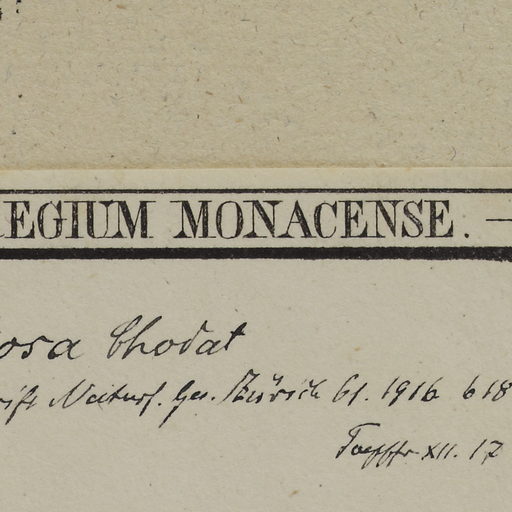 EGIUM MONACENSE. —
osa Chodat
rift Naturf. Ges. Zürich 61. 1916 618
XII. 17